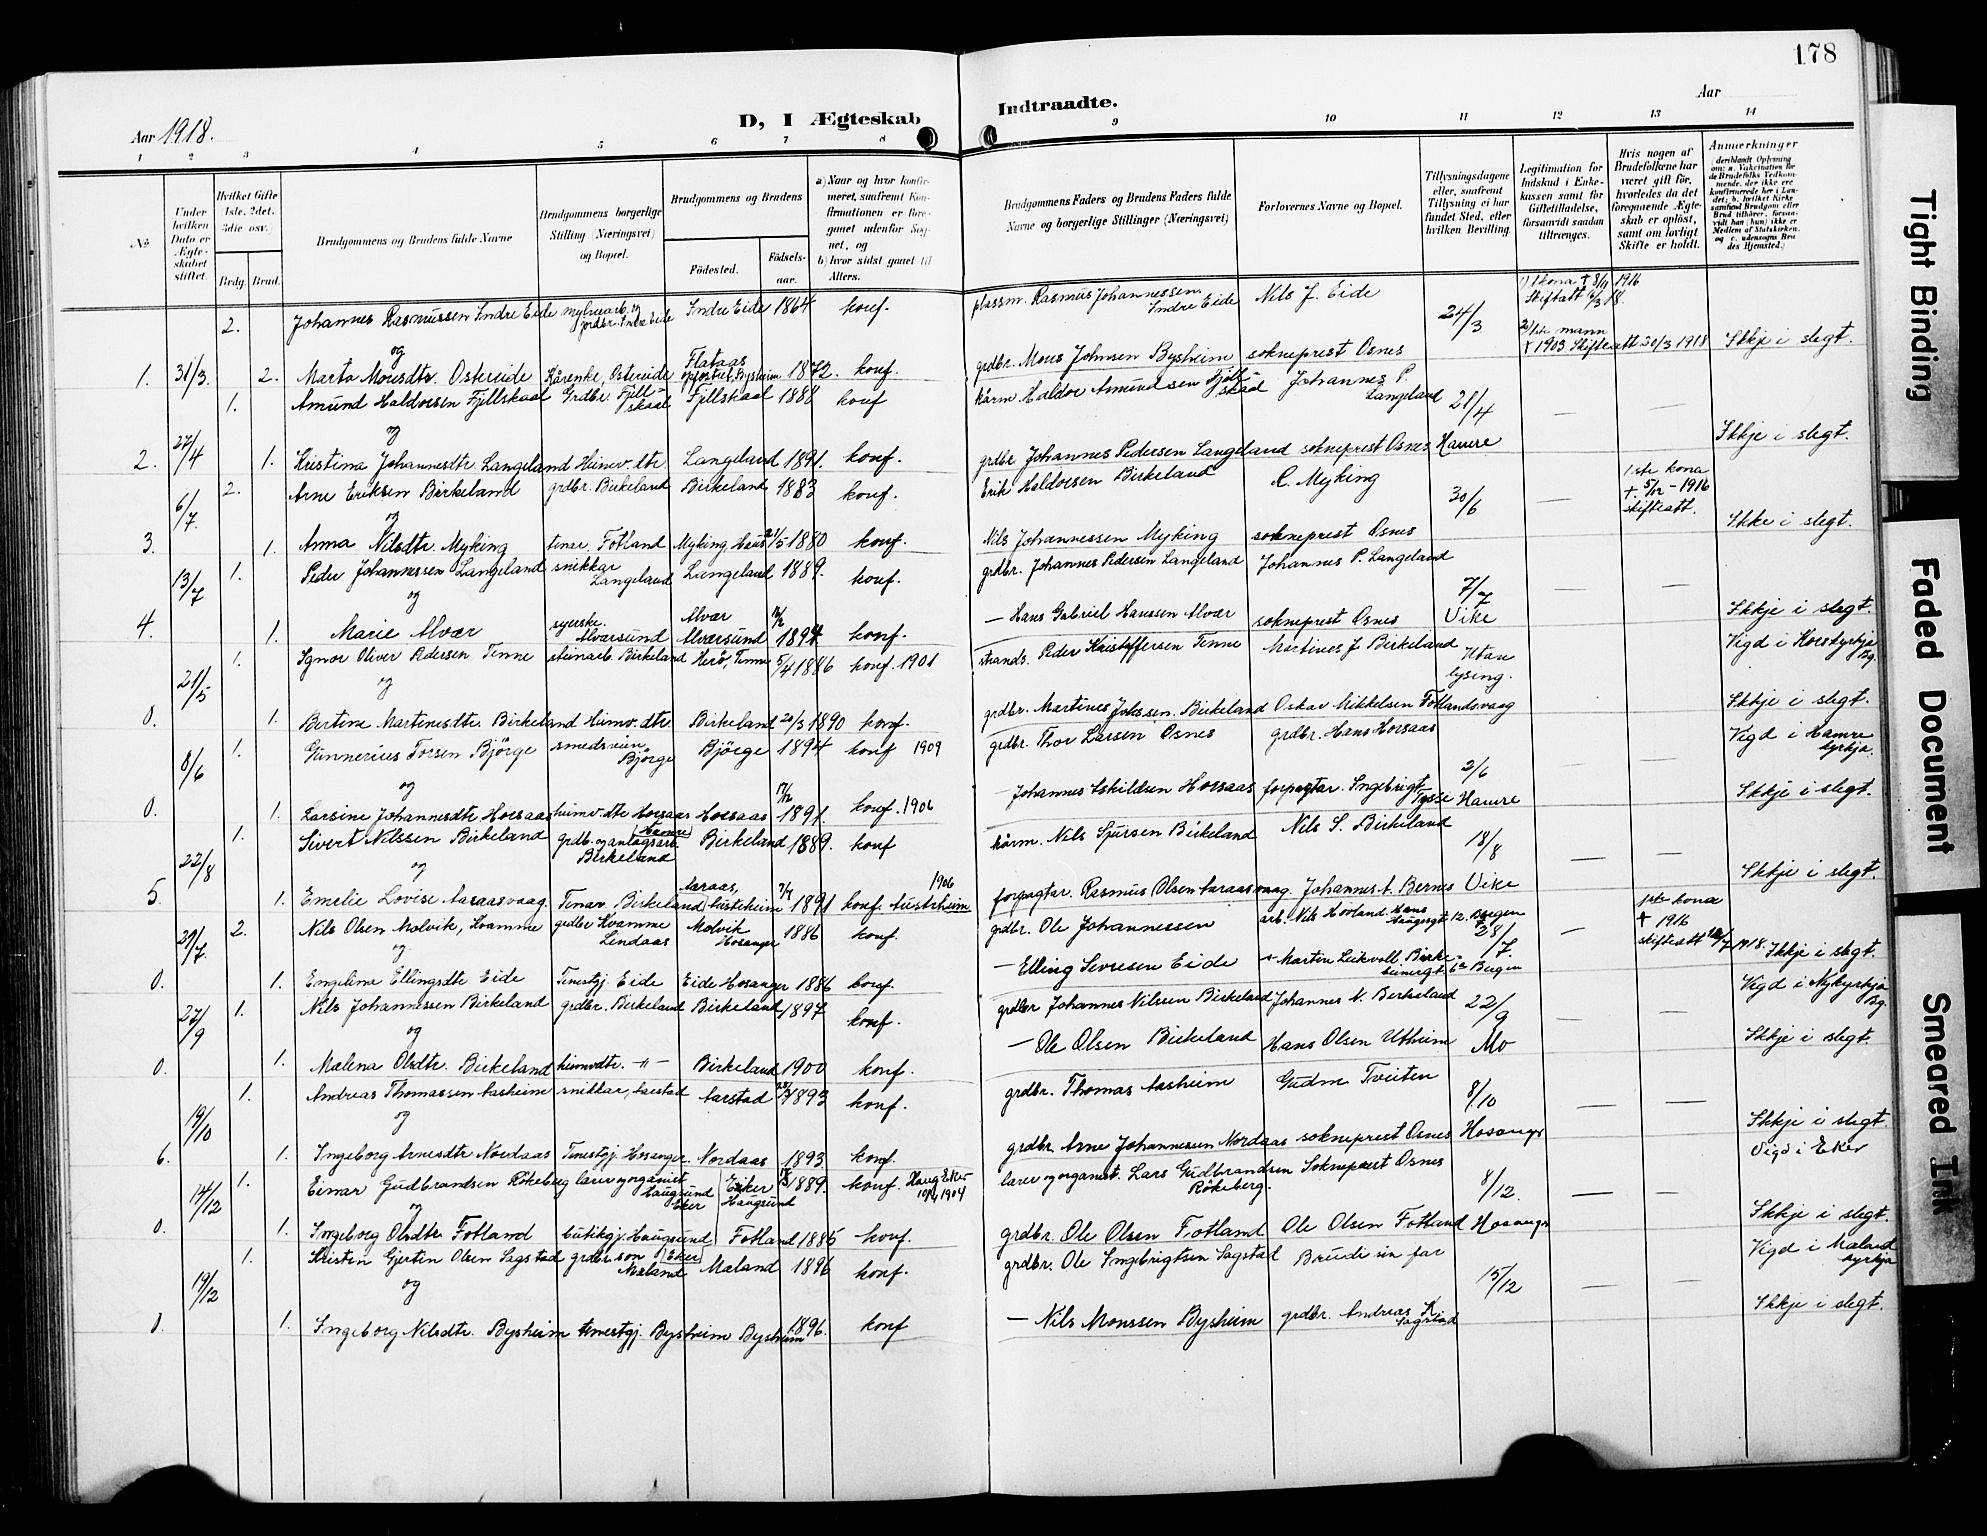 178
Aar 1918.
D, I Ægteskab Indtraadte.
Aar
1 2 3 4 5 6 7 8 9 10 11 12 13 14
No
Under hvilken Dato er Ægteskabet stiftet.
Hvilket Gifte 1ste, 2det, 3die osv.)
Brdg. Brud.
Brudgommens og Brudens fulde Navne
Brudgommens borgerlige Stilling (Næringsvei) og Bopæl.
Brudgommens og Brudens
Födested. Födselsaar.
a) Naar og hvor konfirmeret, saafremt Konfirmationen er foreganet udenfor Sognet, og
b) hvor sidst ganet til Alters.
Brudgommens Faders og Brudens Faders fulde Navne og borgerlige Stillinger (Næringsvei)
Forlovernes Navne og Bopæl.
Tillysningsdagene eller, saafremt Tillysning ei har fundet Sted, efter hvilken Bevilling.
Legitimation for Indskud i Enkekassen samt for Giftetilladelse, forsaavidt saadan tiltrænges.
Hvis nogen af Brudefolkene har været gift för, hvorledes da det foregaaende Ægteskab er oplöst, samt om lovligt Skifte er holdt.
Anmerkninger
2. Johannes Rasmussen Indre Eide myhrearb. og jordbr. Indre Eide Indre Eide 1864 konf. plassm. Rasmus Johannessen Indre Eide Nils J. Eide 24/3 1) 1 kona † 8/11 1916 Skiftatt 6/3 18.
og
2) 1ste mann † 1903 Skifteatt 20/3 1918 Ikkje i slegt.
1. 31/3. 2. Marta Monsdtr. Ostereide Kårenke, Ostereide Flataas opfostret, Bysheim 1872. konf. grdbr. Mons Johnsen Bysheim sokneprest Osnes
1. Amund Haldorsen Fjellskaal Grdbr. Fjellskaal Fjellskaal 1888 konf kårm Haldor Amundsen Fjellskaal Johannes P. Langeland 21/4 — —
og
2. 27/4 1. Kristina Johannesdtr. Langeland Heimv. dtr. Langeland 1891. konf. grdbr. Johannes Pedersen Langeland sokneprest Osnes Hamre Ikkje i slegt.
6/7. 2. Arne Eriksen Birkeland grdbr. Birkeland Birkeland 1883 konf. Erik Haldorsen Birkeland C. Myking 30/6 — 1ste kona †. 5/12 - 1916 skifteatt.
og
3. 1. Anna Nilsdtr. Myking tenar. Fotland Myking Haus 21/5 1880 konf. Nils Johannessen Myking sokneprest Osnes Ikke i slegt.
13/7 1. Peder Johannessen Langeland snikkar Langeland Langeland 1889. konf. grdbr. Johannes Pedersen Langeland Johannes P. Langeland 7/7 — —
og
4. 1. Marie Alvær syerske. Alversund Alvær Alversund 1894 konf. — Hans Gabriel Hanssen Alvær sokneprest Osnes Vike Ikkje i slegt.
1. Ignor Oliver Pedersen Tenne steinarb. Birkeland Herö, Tenne 5/4 1886 konf. 1901 strands. Peder Kristoffersen Tenne Martines J. Birkeland Utan lysing. Vigd i Korskyrkja Bg.
21/5 og
0. 1. Bertine Martinesdtr. Birkeland Heimv. dtr. Birkeland 20/3 1890 konf. grdbr. Martines Johssen. Birkeland Oskar Mikkelsen Fotlandsvaag Ikkje i slegt.
8/6 1. Gunnerius Torsen Björge smedsvein. Björge Björge 1894 konf 1909 grdbr. Thor Larsen Osnes grdbr. Hans Horsaas 2/6 — — Vigd i Hamre kyrkja.
og
0. 1. Larsine Johannesdtr Horsaas heimv. dtr Horsaas Horsaas 1891. konf. 1906 — Johannes Eskildsen Horsaas forpagtar. Ingebrigt Tysse Hamre Ikkje i slegt.
22/8 1. Sivert Nilssen Birkeland grdb. og anlagsarb. Birkeland (Hamre) Birkeland 1889. konf kårm. Nils Sjursen Birkeland Nils S. Birkeland 18/8 — —
og
5 1. Emelie Lovise Aaraasvaag. Tenar Birkeland Aaraas, Austrheim 7/7 1891 konf. Austrheim 1906 forpagtar. Rasmus Olsen Aaraasvaag. Johannes A. Bernes Vike Ikkje i slegt.
29/7. 2. Nils Olsen Molvik, Kvamme grdbr Kvamme Lindaas Molvik Hosanger 1886 konf. grdbr. Ole Johannessen arb. Nils Hovland. Hans Haugesgt 12. Bergen 28/7. — 1ste kona † 1916 skifteatt 1918.
og
0. 1. Engeline Ellingsdtr Eide Tenestgj. Eide Eide Hosanger 1886 konf. — Elling Sevresen Eide Martin Leikvoll Birkebeinergt. 6 Bergen Ikkje i slegt.
27/9 1. Nils Johannessen Birkeland grdbr. Birkeland Birkeland 1897 konf. grdbr Johannes Nilssen Birkeland Johannes N. Birkeland 22/9 Vigd i Nykyrkja Bg.
og
0. 1. Malena Olsdtr. Birkeland heimvdtr. —"— Birkeland 1900 konf. — Ole Olsen Birkeland Hans Olsen Utheim Mo Ikkje i slegt.
19/10 1. Andreas Thomassen Aasheim snikkar, Aarstad Aarstad 1893 konf. grdbr. Thomas Aasheim Gudm Tveiten 8/10 — —
og
6. 1. Ingeborg Arnesdtr Nordaas Tenestgj. Hosanger. Nordaas 1893 konf. grdbr. Arne Johannessen Nordaas sokneprest Osnes Hosanger Ikkje i slegt.
14/12 1. Einar Gudbrandsen Rökeberg lærer og organist Haugsund Eker Eiker Haugsund 1889. konf. Haug Eker 1904 lærer og organist. Lars Gudbrandsen Rökeberg. Sokneprest Osnes 8/12. — — Vigd i Eker
og
0. 1. Ingeborg Olsdtr Fotland butikgj. Haugsund (Eker) Fotland 1885 konf. grdbr. Ole Olsen Fotland Ole Olsen Fotland Hosanger Ikkje i slegt.
19/12 1. Kristen Gjerten Olsen Sagstad grdbr. son Mæland Mæland 1896 konf. grdbr. Ole Ingebrigtsen Sagstad Brudi in far 15/12 — — Vigd i Mæland kyrkja
og
0. 1. Ingeborg Nilsdtr. Bysheim tenestgj. Bysheim Bysheim 1896. konf — Nils Monssen Bysheim grdbr. Andreas K Sagstad Ikkje i slegt.
Tight Binding
Faded Document
Smeared Ink